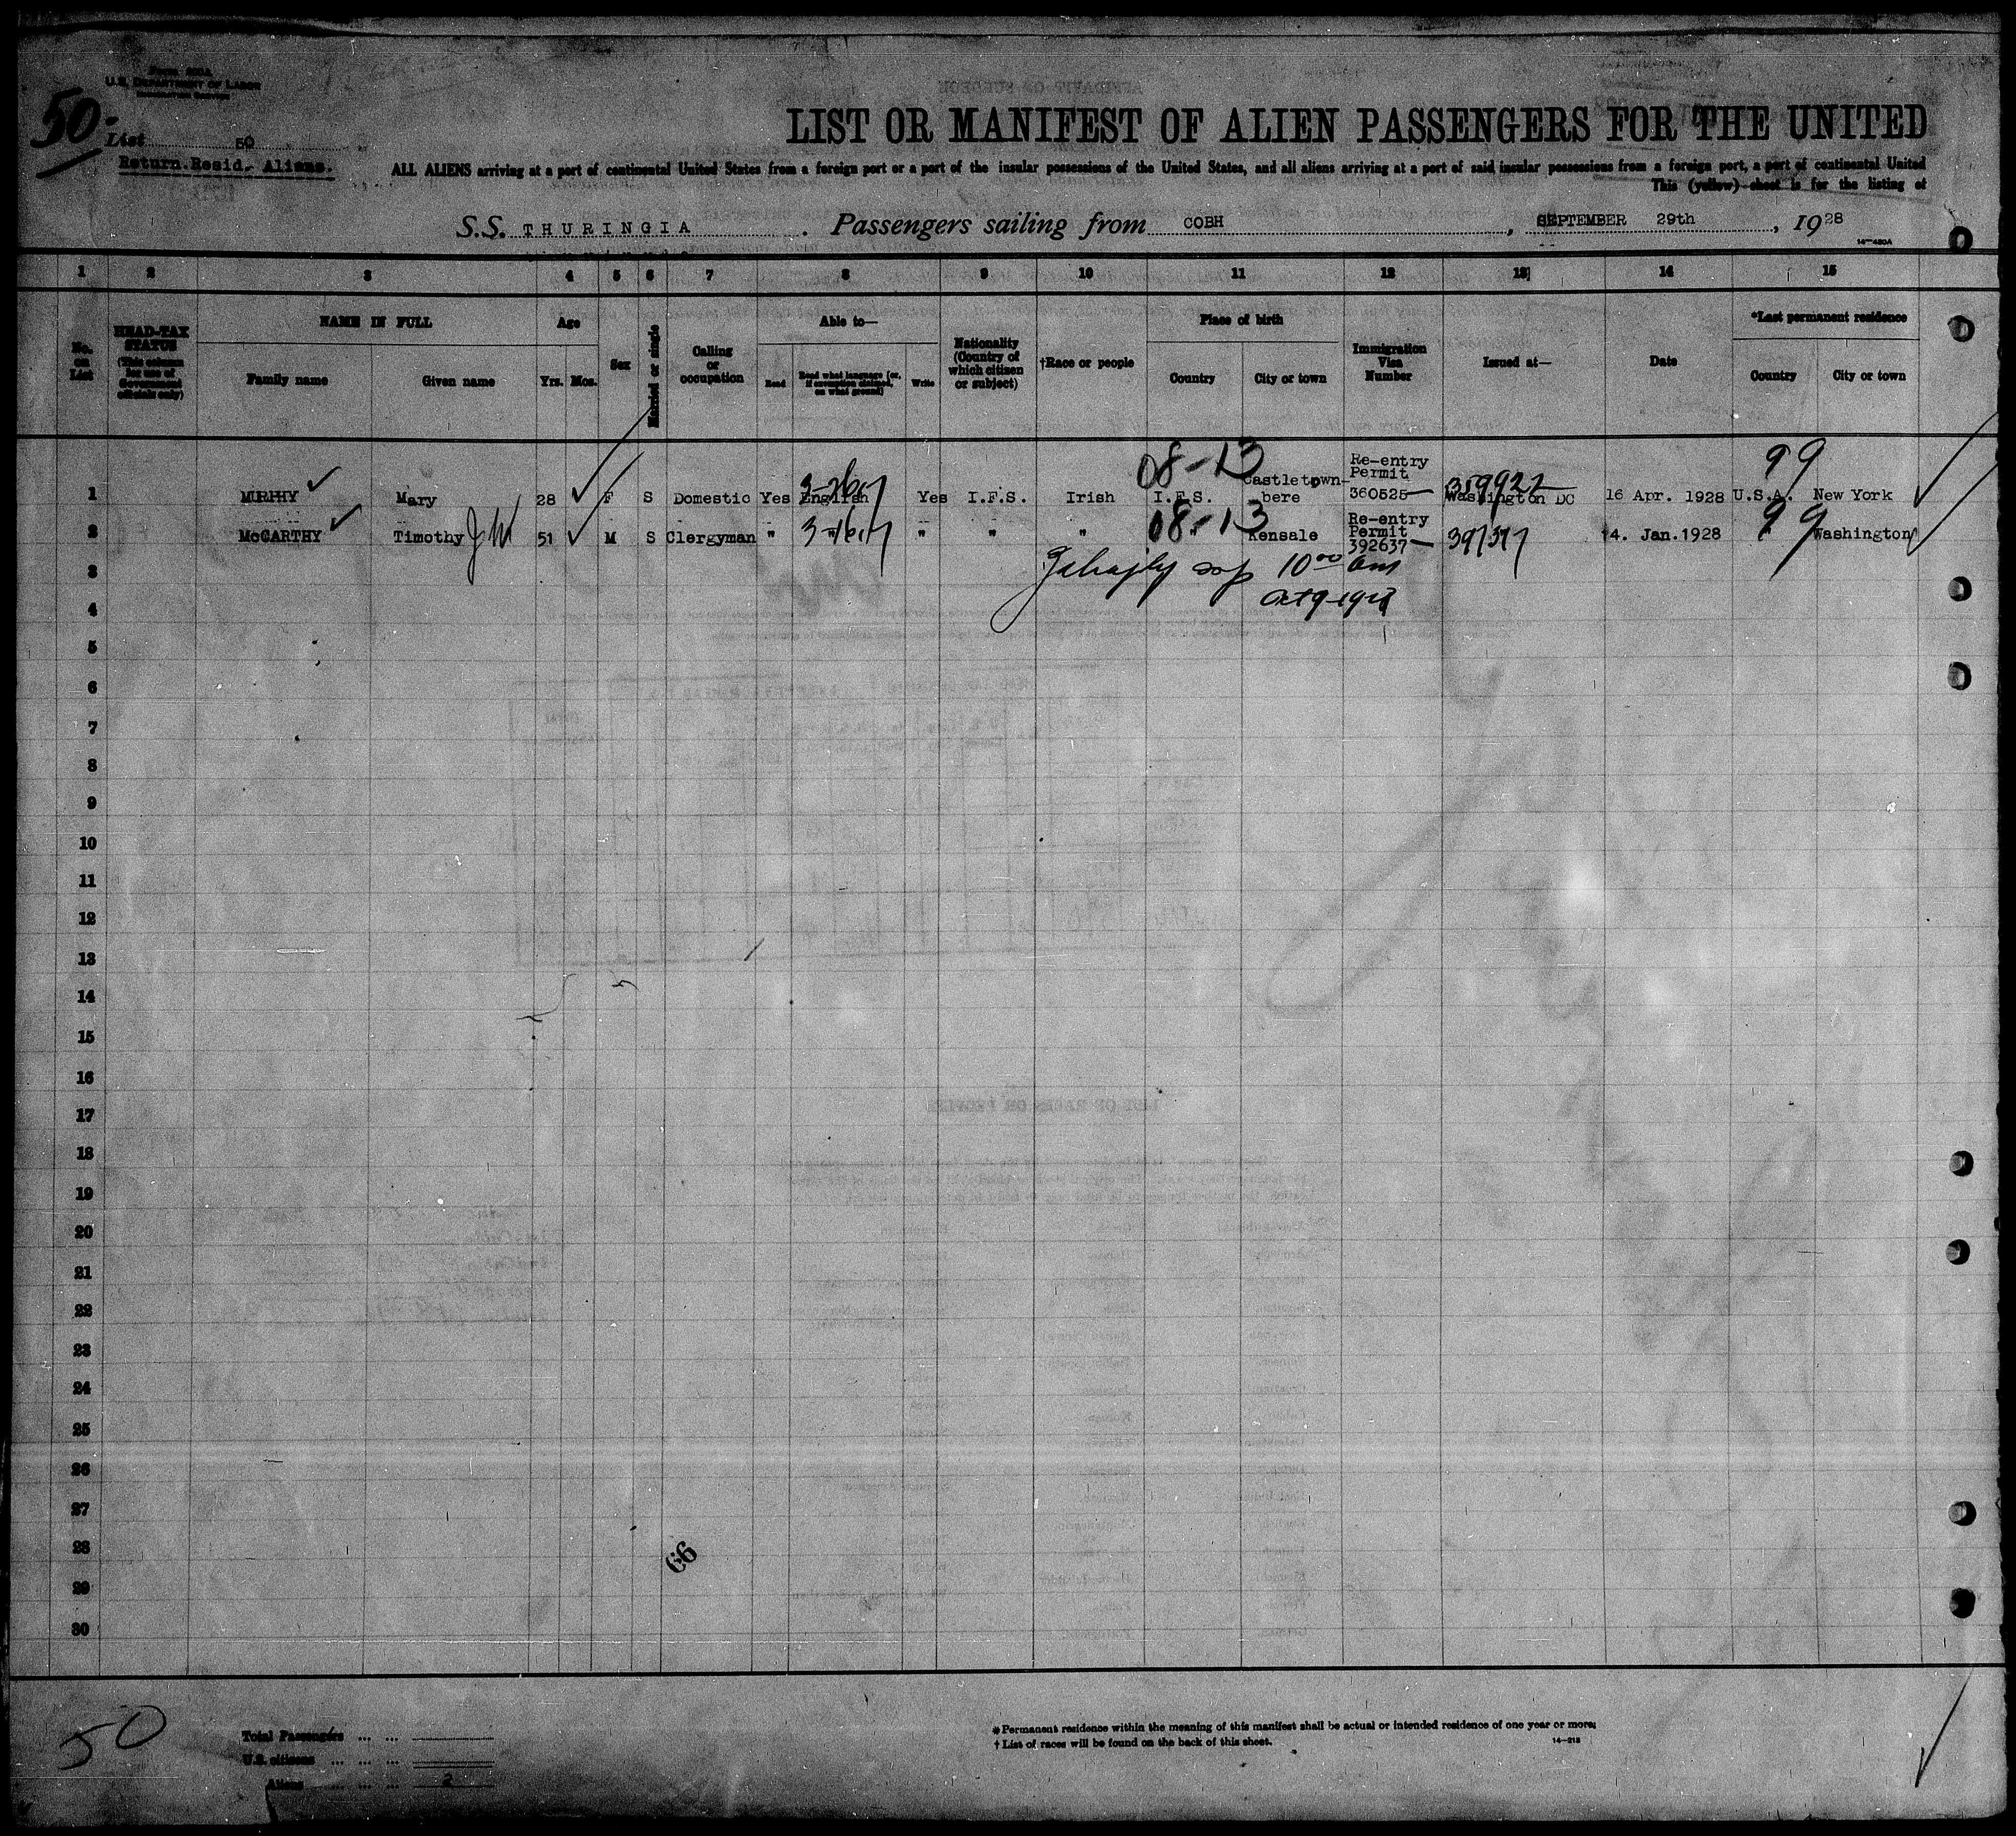 Form 500A
U.S. DEPARTMENT OF LABOR
IMMIGRATION SERVICE
50-
List 50
Return.Resid. Aliens.
LIST OR MANIFEST OF ALIEN PASSENGERS FOR THE UNITED
ALL ALIENS arriving at a port of continental United States from a foreign port or a port of the insular possessions of the United States, and all aliens arriving at a port of said insular possessions from a foreign port, a port of continental United
This (yellow) sheet is for the listing of
S.S. THURINGIA. Passengers sailing from COBH, SEPTEMBER 29th, 1928
14-480A
1 2 3 4 5 6 7 8 9 10 11 12 13 14 15
No. on List
HEAD-TAX STATUS (This column for use of Government officials only)
NAME IN FULL
Family name Given name
Age
Yrs. Mos.
Sex
Married or single
Calling or occupation
Able to—
Read Read what language (or, if exemption claimed, on what ground) Write
Nationality (Country of which citizen or subject)
†Race or people
Place of birth
Country City or town
Immigration Visa Number
Issued at—
Date
*Last permanent residence
Country City or town
08-13 99
1 MURPHY Mary 28 F S Domestic Yes English Yes I.F.S. Irish I.F.S. Castletown-bere Re-entry Permit 360525 359922 Washington DC 16 Apr. 1928 U.S.A. New York
2 McCARTHY Timothy 51 M S Clergyman " " " " " 08-13 " Kensale Re-entry Permit 392637 397397 14. Jan.1928 99 Washington
3 10 00 am
4 Oct 9-1928
5
6
7
8
9
10
11
12
13
14
15
16
17
18
19
20
21
22
23
24
25
26
27
28
29
30
66
50
Total Passengers ... ...
U.S. citizens ... ... ...
Aliens ... ... ... 2
* Permanent residence within the meaning of this manifest shall be actual or intended residence of one year or more.
† List of races will be found on the back of this sheet.
14-213